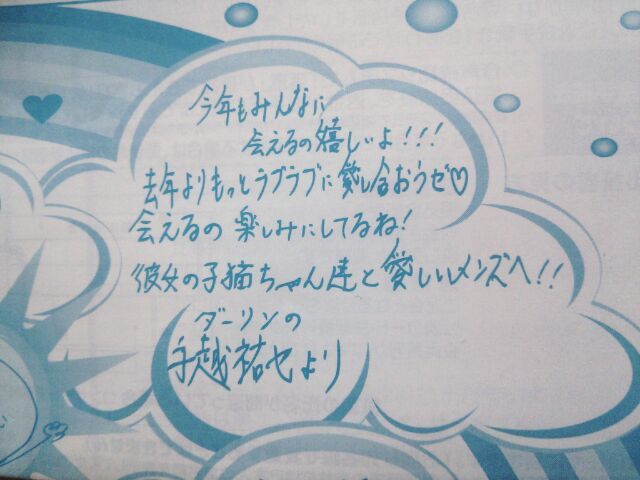 今年もみんなに
会えるの嬉しいよ!!!
去年よりもっとラブラブに愛し合おうゼ♡
会えるの楽しみにしてるね!
彼女の子猫ちゃん達と愛しいメンズへ!!
ダーリンの
手越祐也より